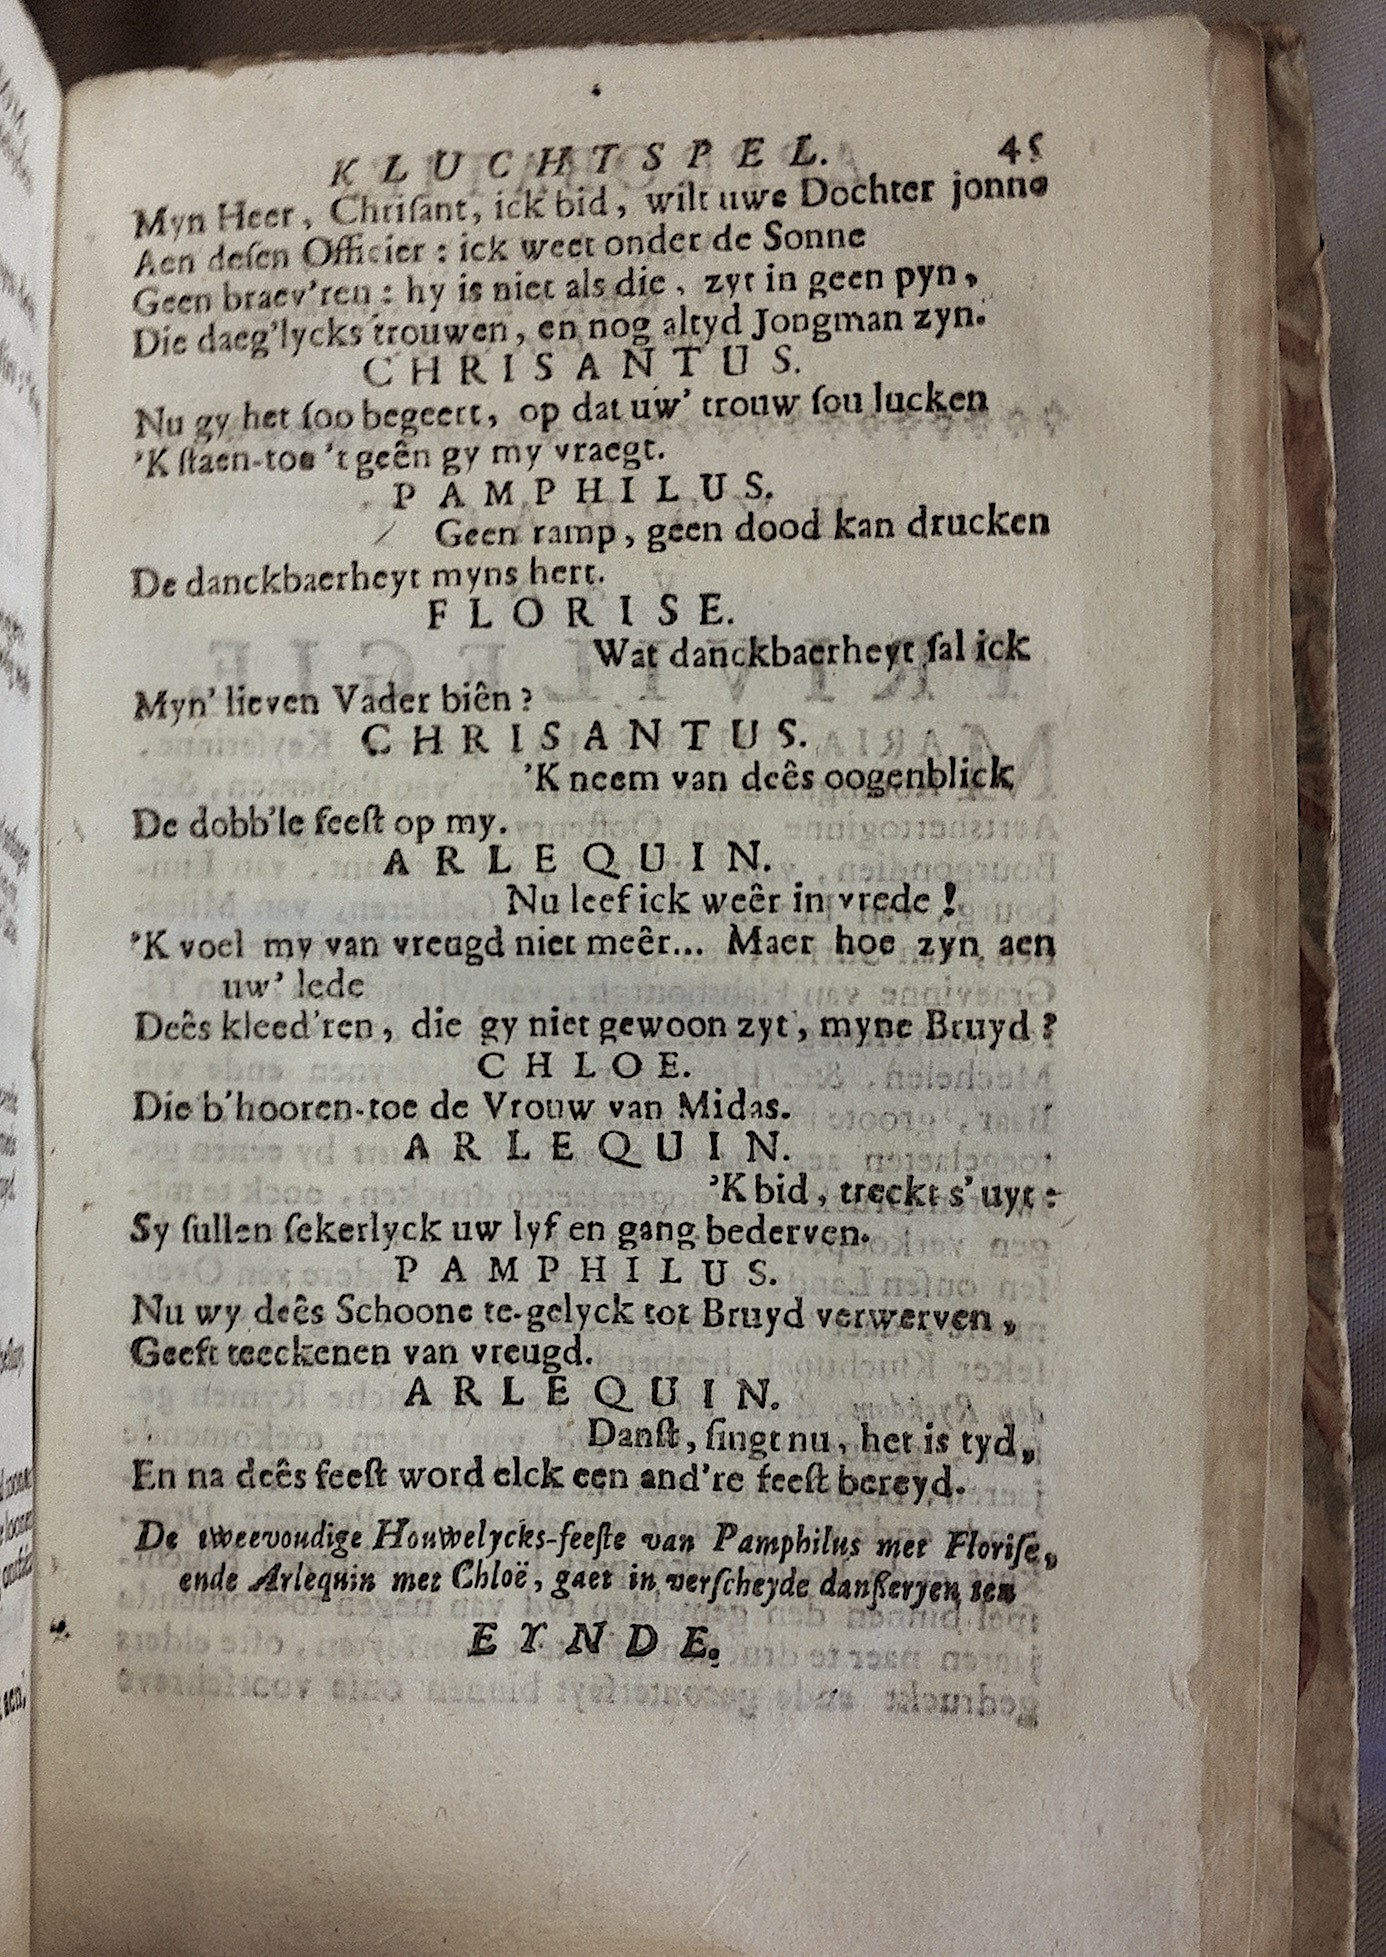 KLUCHTSPEL. 45
Myn Heer, Chriſant, ick bid, wilt uwe Dochter jonne
Aen deſen Officier : ick weet onder de Sonne
Geen braev'ren : hy is niet als die, zyt in geen pyn,
Die daeg'lycks trouwen, en nog altyd Jongman zyn.
CHRISANTUS.
Nu gy het ſoo begeert, op dat uw' trouw ſou lucken
'K ſtaen-toe 't geên gy my vraegt.
PAMPHILUS.
Geen ramp, geen dood kan drucken
De danckbaerheyt myns hert.
FLORISE.
Wat danckbaerheyt ſal ick
Myn' lieven Vader biên ?
CHRISANTUS.
'K neem van deês oogenblick
De dobb'le feeſt op my.
ARLEQUIN.
Nu leef ick weêr in vrede !
'K voel my van vreugd niet meêr... Maer hoe zyn aen
uw' lede
Deês kleed'ren, die gy niet gewoon zyt, myne Bruyd ?
CHLOE.
Die b'hooren-toe de Vrouw van Midas.
ARLEQUIN.
'K bid, treckt s' uyt :
Sy ſullen ſekerlyck uw lyf en gang bederven.
PAMPHILUS.
Nu wy deês Schoone te-gelyck tot Bruyd verwerven,
Geeft teeckenen van vreugd.
ARLEQUIN.
Danſt, ſingt nu, het is tyd,
En na deês feeſt word elck een and're feeſt bereyd.
De tweevoudige Houwelycks-feeſte van Pamphilus met Floriſe,
ende Arlequin met Chloë, gaet in verſcheyde danßeryen ten
EYNDE.